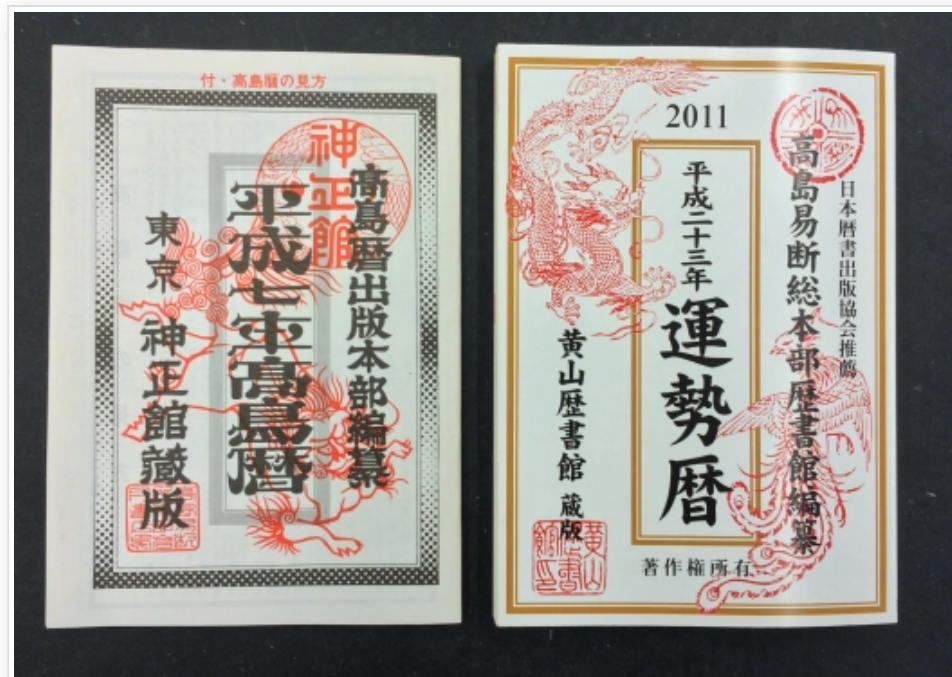 付・高島暦の見方
神正館
髙島暦出版本部編纂
平成七年髙島暦
東京 神正館藏版
2011
日本暦書出版協会推薦
高島易断総本部歴書館編纂
平成二十三年 運勢暦
黄山歴書館 蔵版
著作権所有